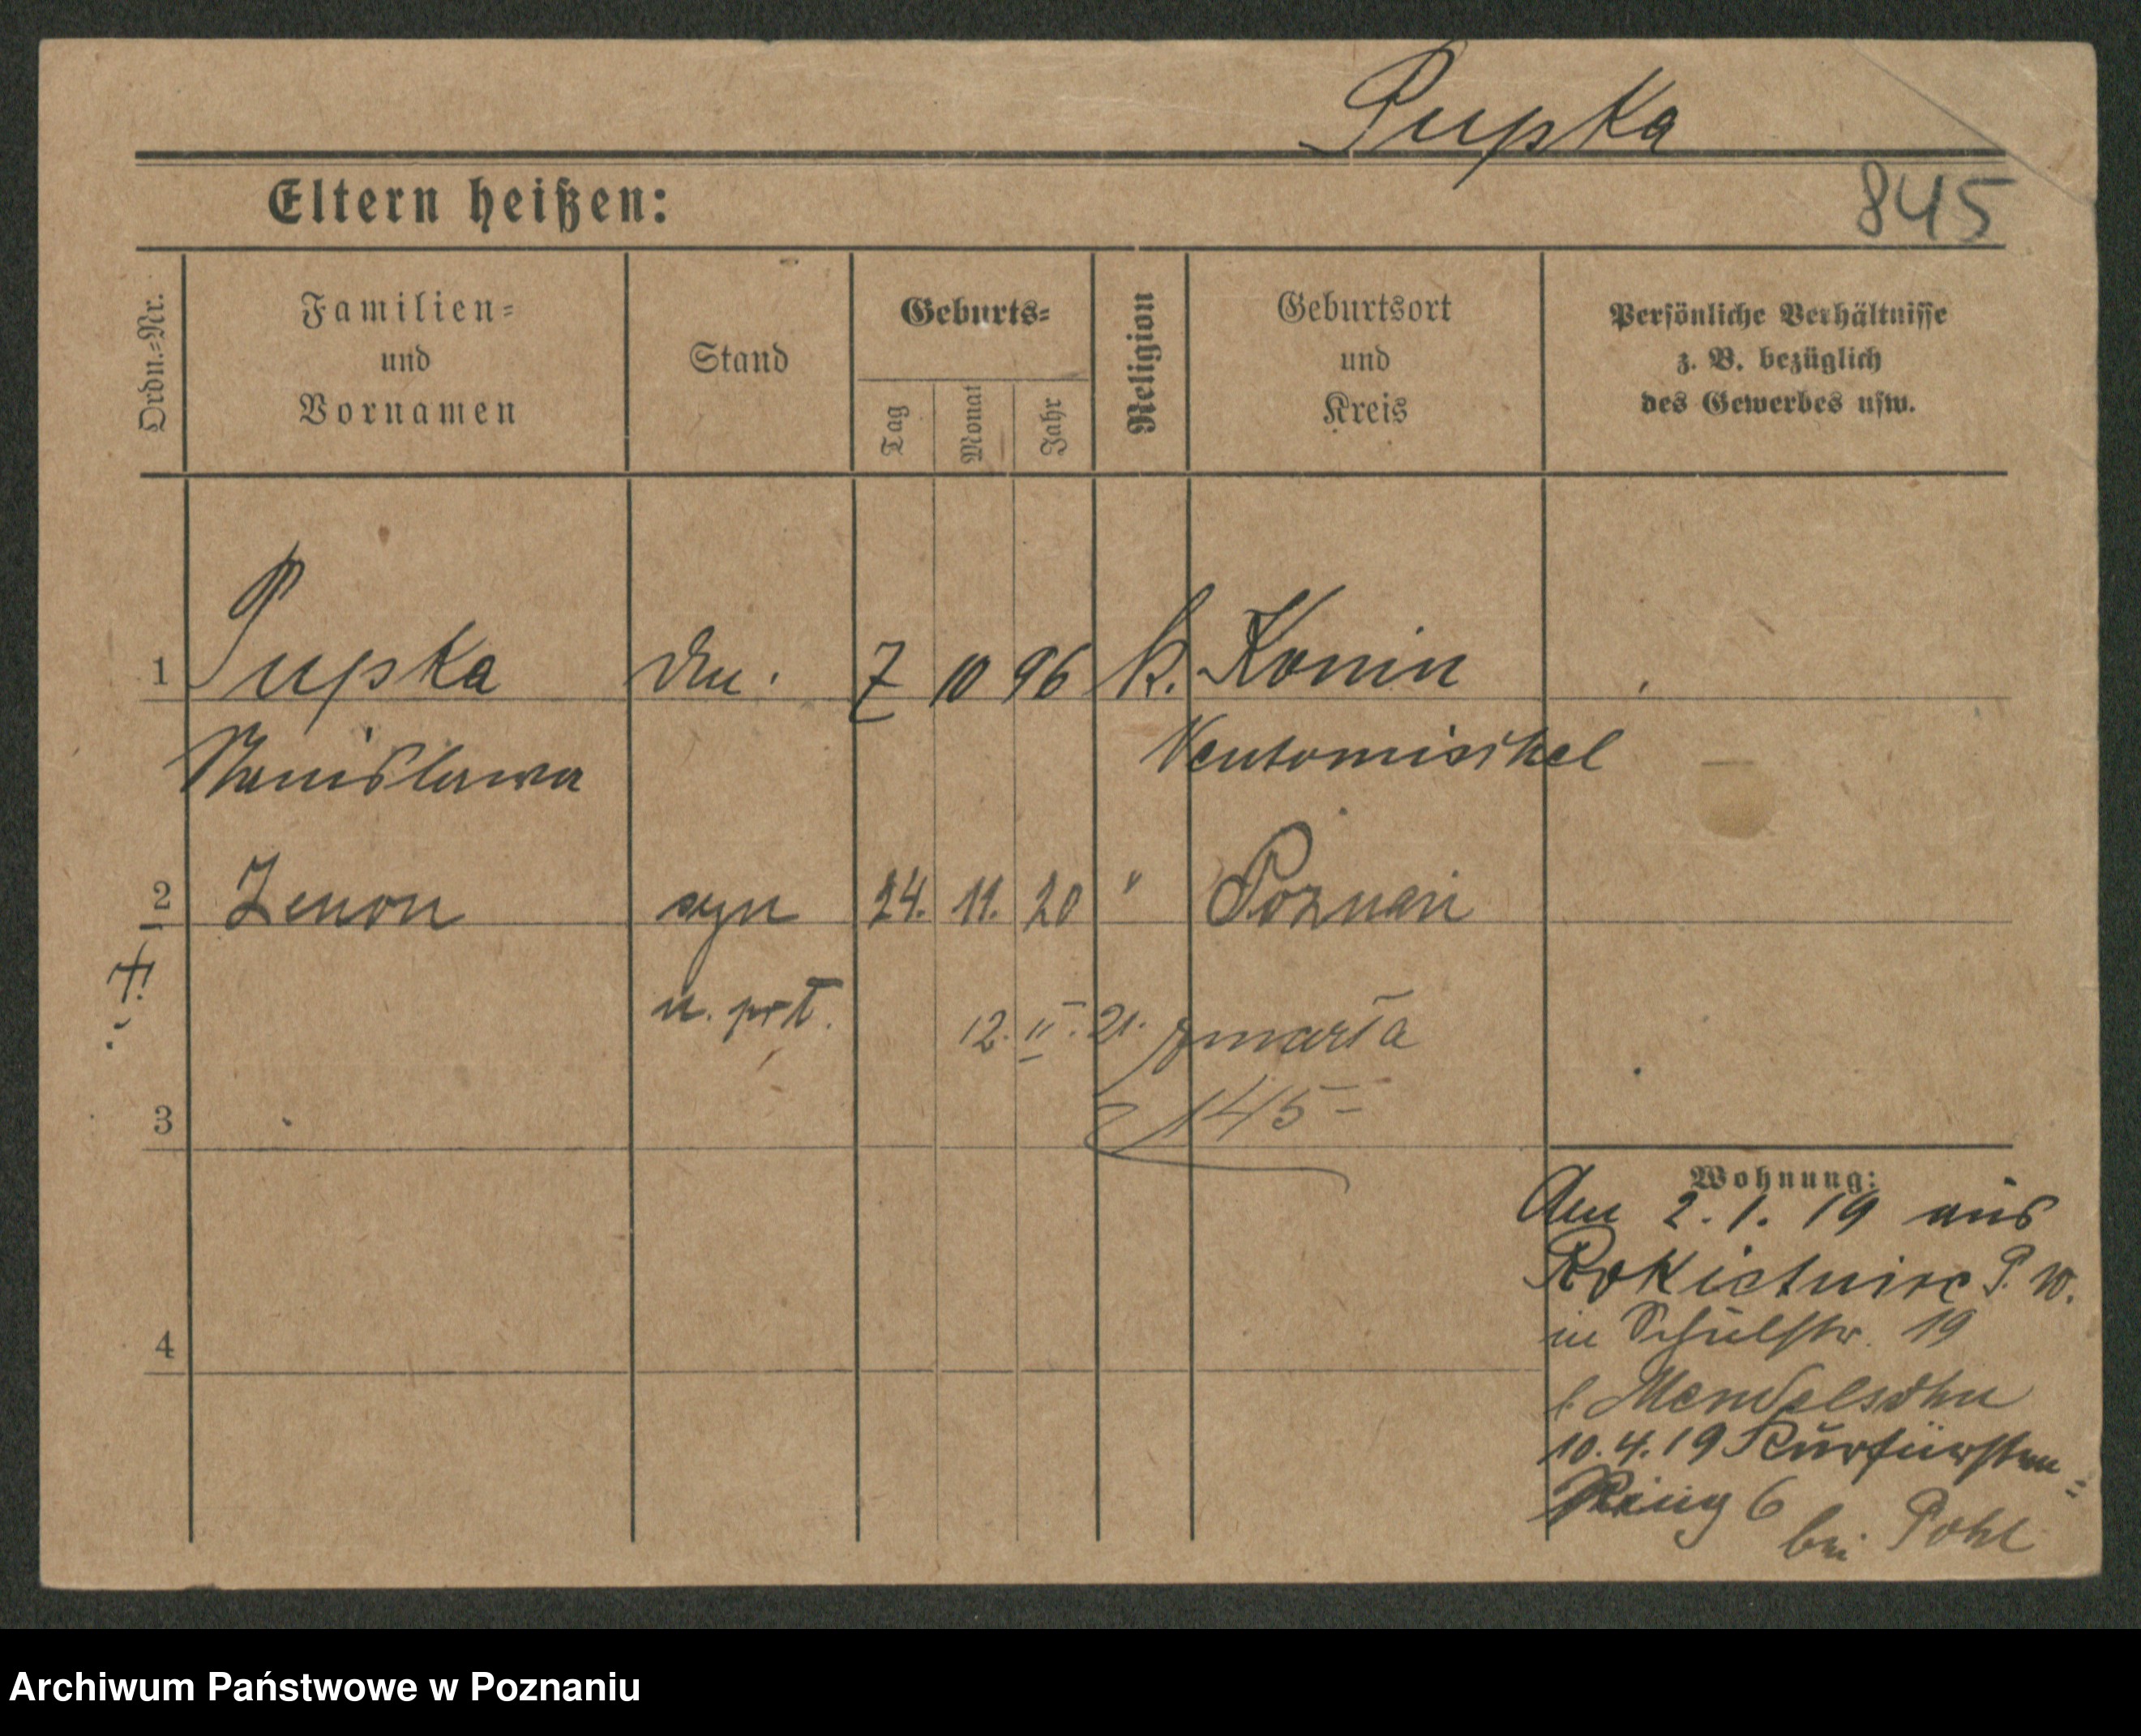 Pupka
845
Eltern heißen:
Ordn.-Nr.
Familien-
und
Vornamen
Stand
Geburts-
Tag
Monat
Jahr
Religion
Geburtsort
und
Kreis
Persönliche Verhältnisse
z. B. bezüglich
des Gewerbes usw.
1 Pupka 7 10 96 k. Konin
Stanislawa Neutomischel
2 Zenon syn 24. 11. 20 " Poznań
n. 12. II. 21. zmarła
145-
3
Wohnung:
Am 2.1.19 aus
Rokietnice P. W.
in Schulstr. 19
b. Mendelsohn
10.4.19 Kurfürsten-
Ring 6
bei Pohl
4
Archiwum Państwowe w Poznaniu